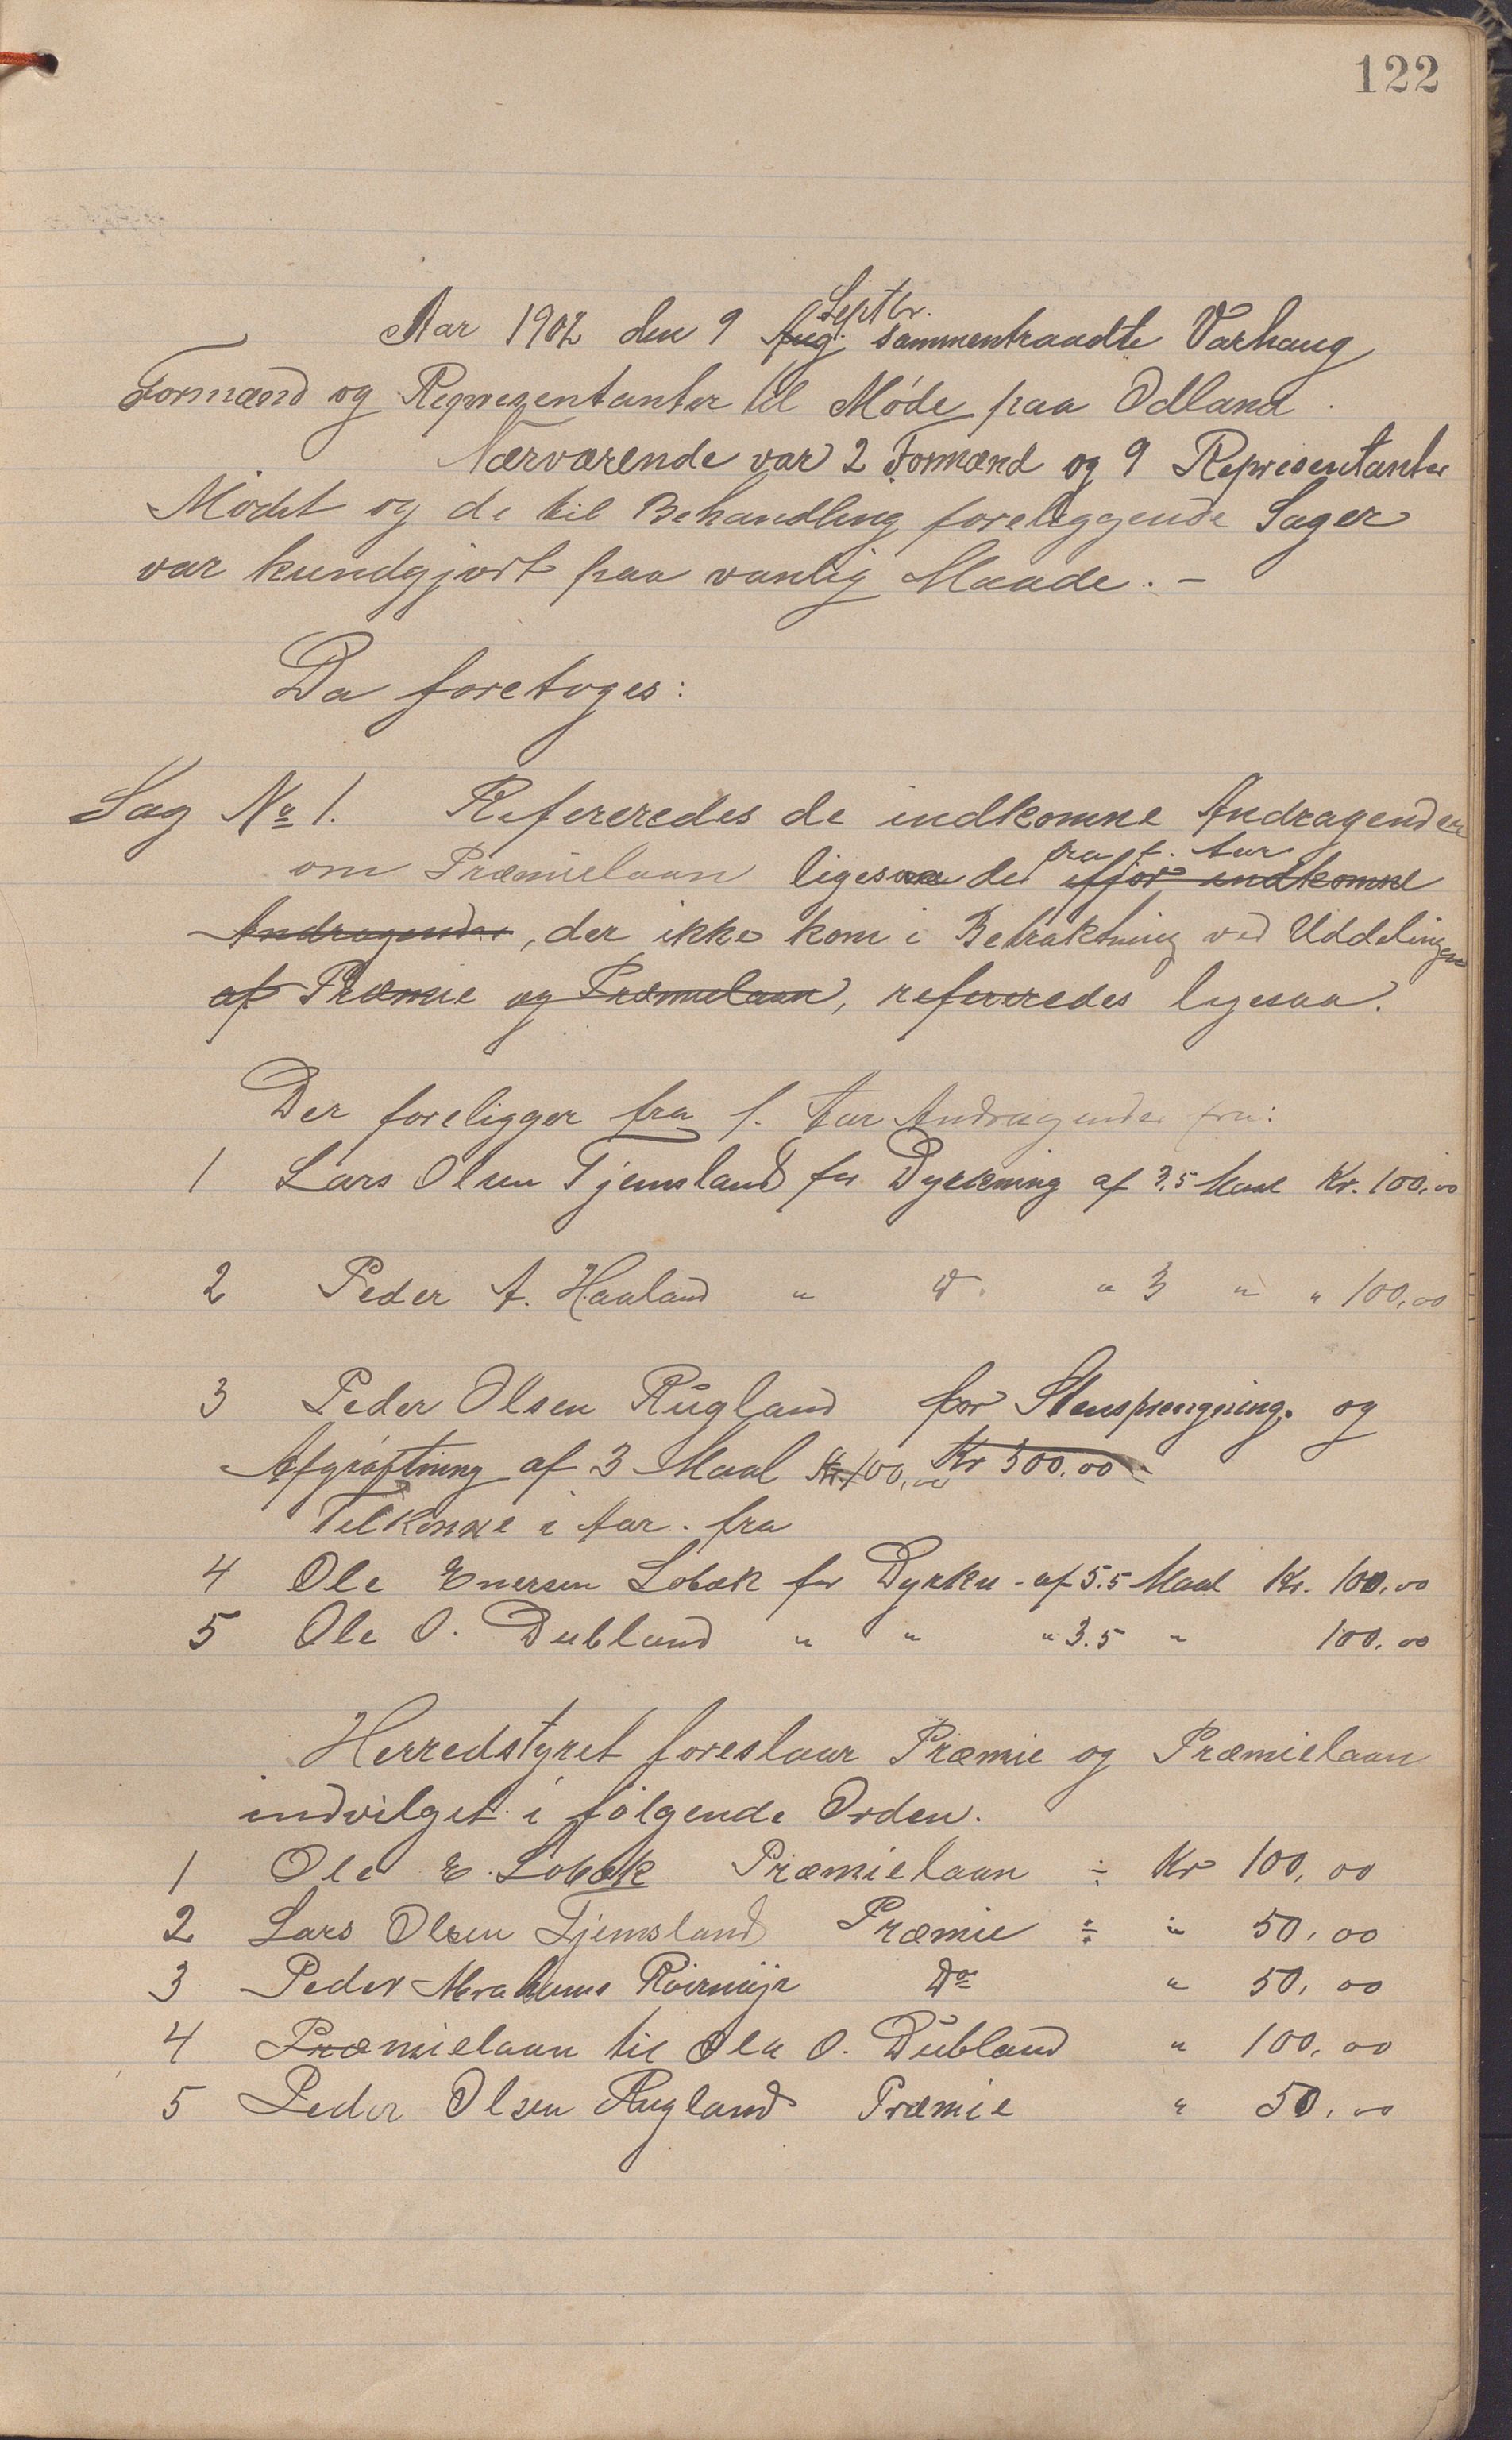 122
Septbr.
Aar 1902 den 9 Aug. sammentraadte Varhaug
Formænd og Representanter til Møde paa Odland.
Nærværende var 2 Formænd og 9 Representanter
Mødet og de til Behandling foreliggende Sager
var kundgjort paa vanlig Maade. -
Da foretoges:
Sag No 1. Refereredes de indkomne Andragender
fra f. Aar
om Præmielaan ligesaa de ifjor indkomne
Andragender, der ikke kom i Betraktning ved Uddelingen
af Præmie og Præmielaan, refereredes ligesaa.
Der foreligger fra f. Aar Andragender fra:
1 Lars Olsen Tjemsland for Dyrkning af 3,5 Maal Kr. 100,00
2 Peder A. Haaland " D. " 3 " " 100,00
3 Peder Olsen Rugland for Stensprengning og
Afgrøftning af 3 Maal Kr. 100,00 Kr 300,00
Tilkomne i Aar fra
4 Ole Enersen Lobæk for Dyrkn. af 5.5 Maal Kr. 100,00
5 Ole O. Dubland " " " 3.5 " 100.00
Herredstyret foreslaar Præmie og Præmielaan
indvilget i følgende Orden.
1 Ole E. Lobæk Præmielaan ÷ Kr 100,00
2 Lars Olsen Tjemsland Præmie ÷ " 50,00
3 Peder Abrahams Do " 50,00
4 Præmielaan til Ole O. Dubland " 100,00
5 Peder Olsen Rugland Præmie " 50,00